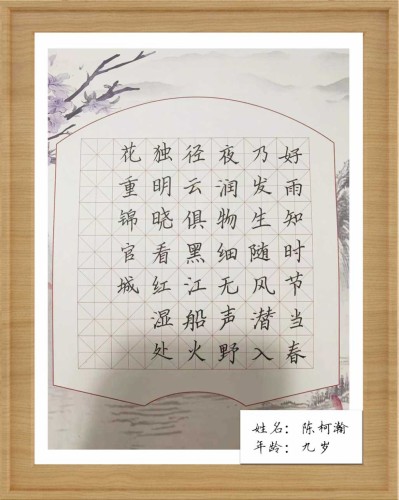 好雨知时节当春
乃发生随风潜入
夜润物细无声野
径云俱黑江船火
独明晓看红湿处
花重锦官城
姓名：陈柯瀚
年龄：九岁